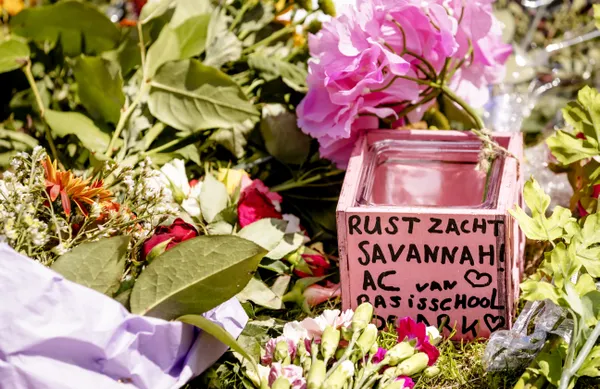 RUST ZACHT
SAVANNAH
AC van
BASISSCHOOL
DE ARK